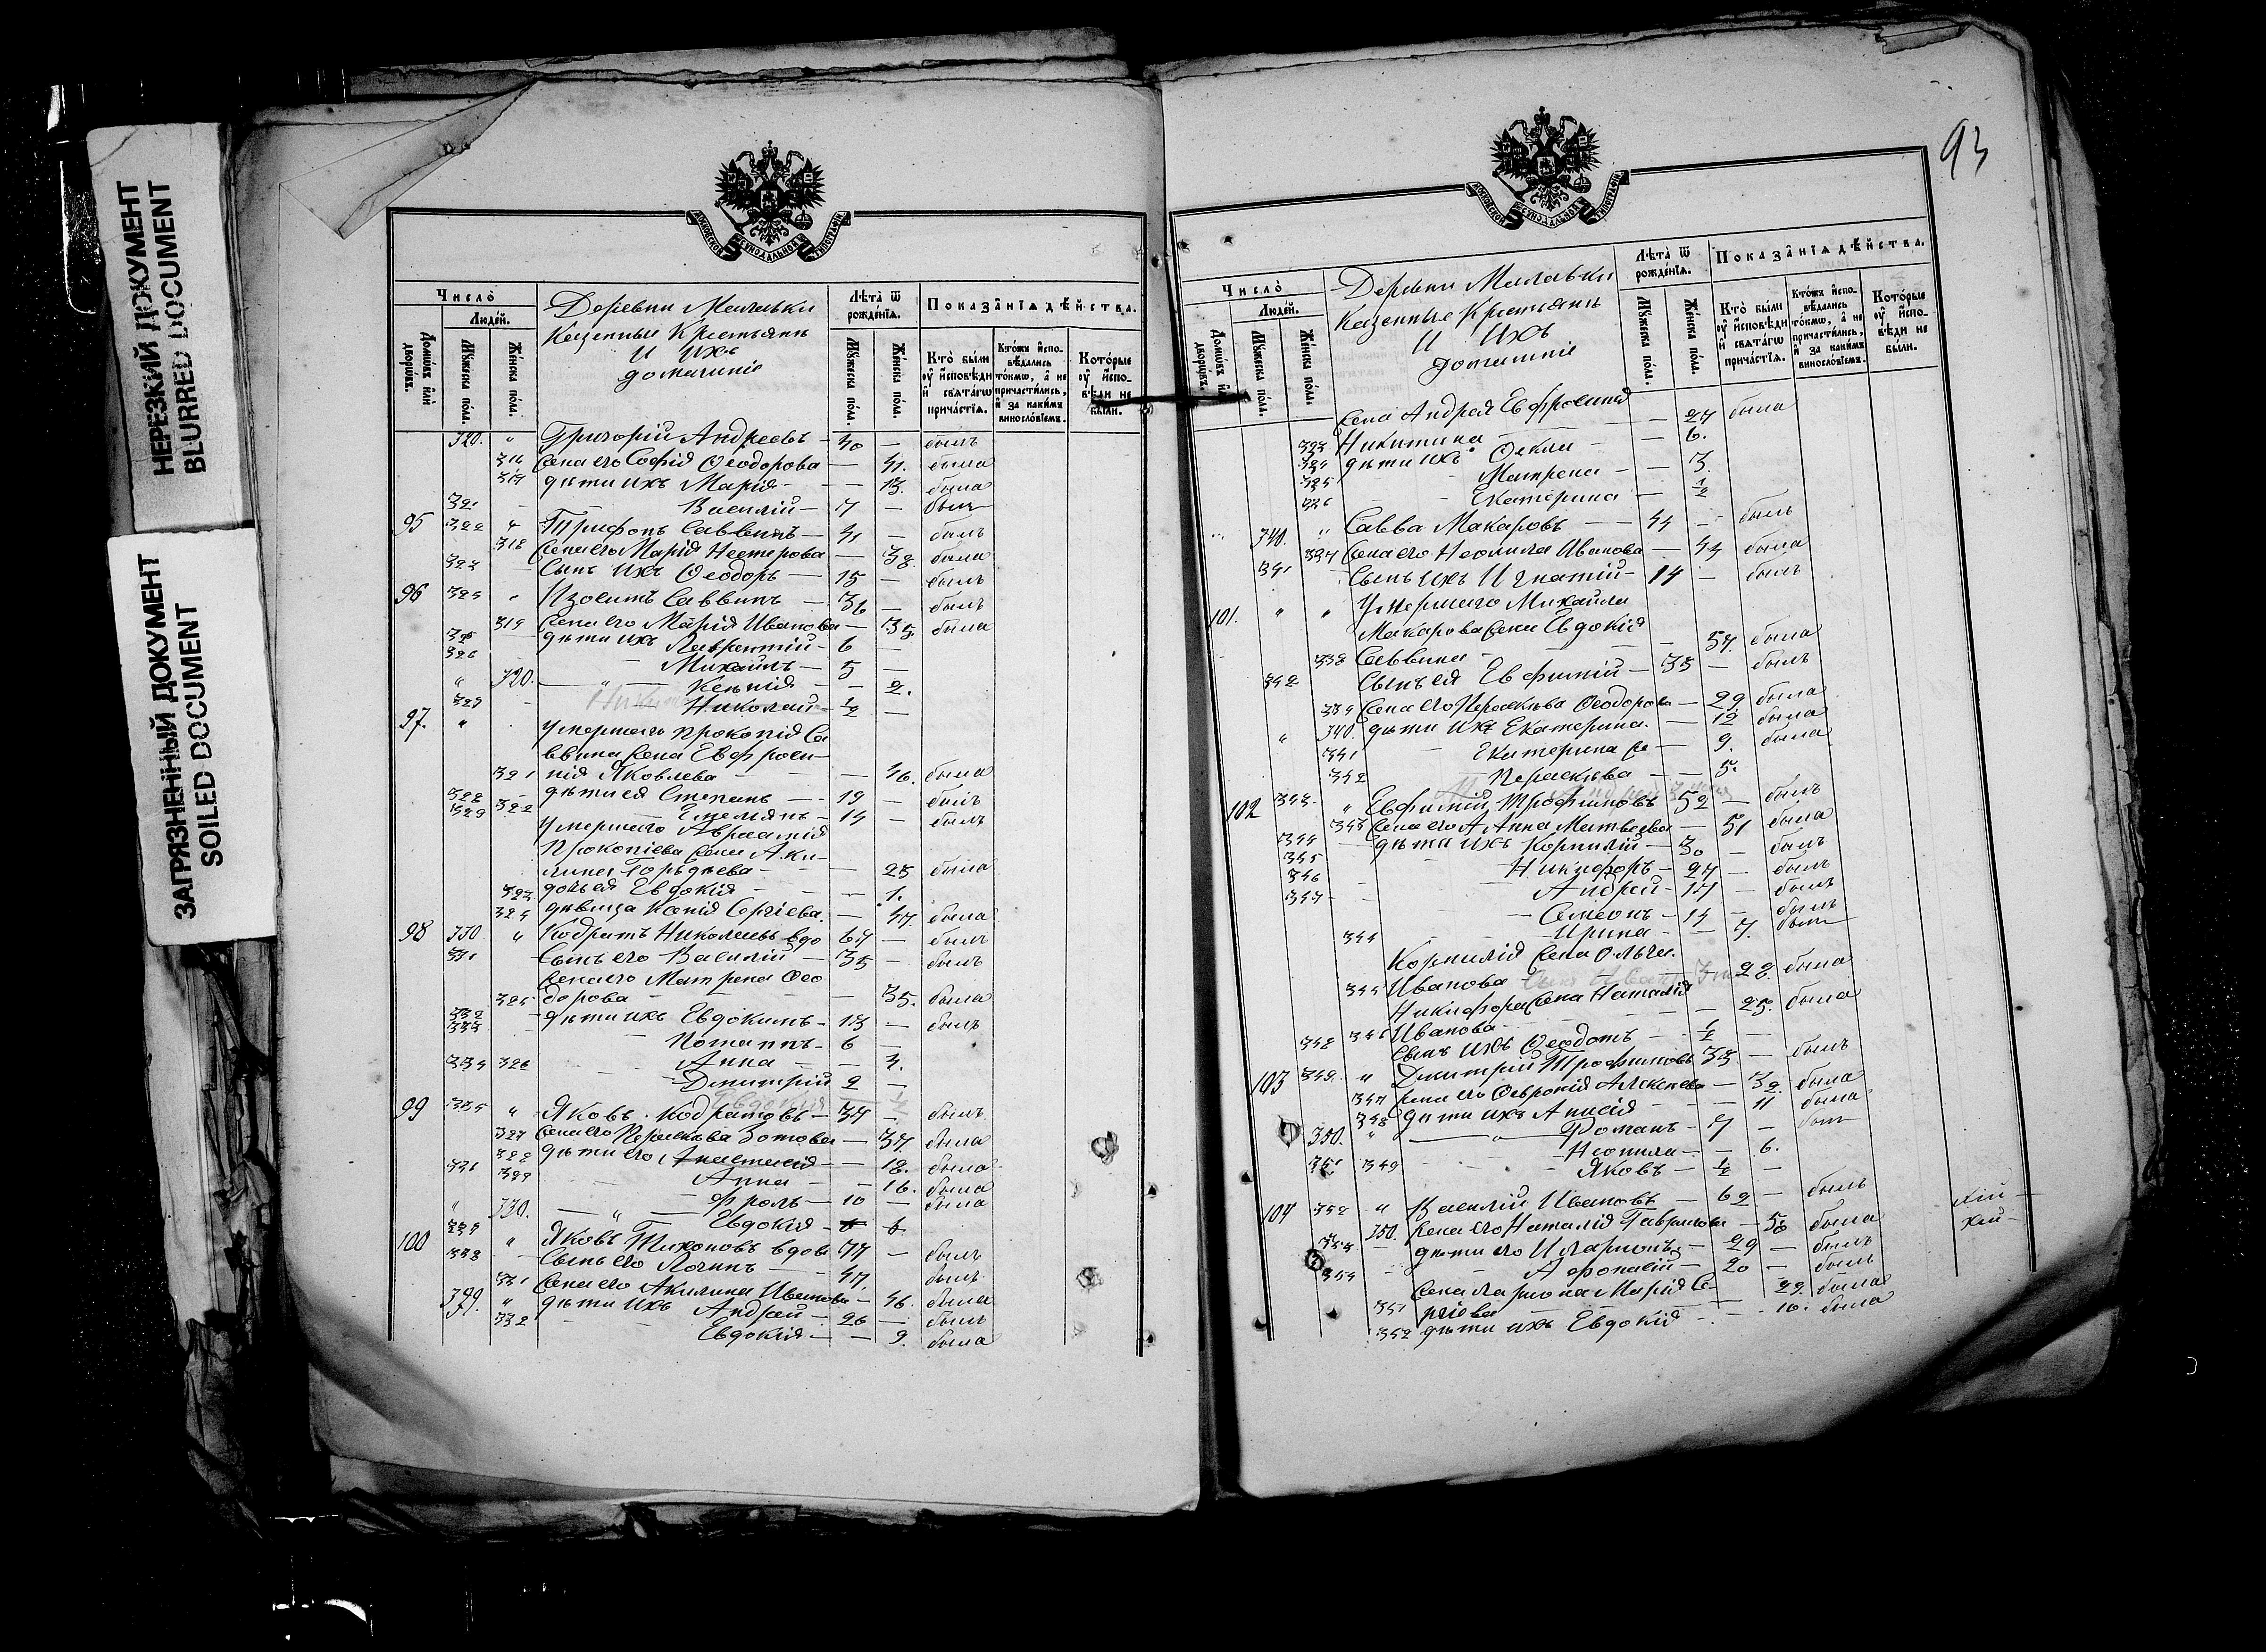 НЕРЕЗКИЙ ДОКУМЕНТ
BLURRED DOCUMENT
ЗАГРЯЗНЕННЫЙ ДОКУМЕНТ
SOILED DOCUMENT
Число̀
Людей.
Домѡвъ или дворѡвъ.
Мꙋжеска пола.
Женска пола.
Деревни
Казенные Крестьяне
и ихъ
домашние
Лѣта ѿ рожденїѧ.
Мꙋжеска пола.
Женска пола.
Показанїѧ дѣйства.
Кто были ᲂу исповѣди и свѧтагѡ причастїѧ.
Ктожъ исповѣдались токмѡ, а не причастились, и за какимъ винословїемъ.
Которые ᲂу исповѣди не были.
320. " Григорій Андреевъ — 40 — былъ
316 жена его Софія Ѳеодорова — 41. была
317 дѣти ихъ Марія — 13. была
321 Василій — 7 — былъ
95 322 " Трифонъ Саввинъ — 41 — былъ
318 жена его Марія Нестерова — 38. была
323 сынъ ихъ Ѳеодоръ — 15 — былъ
96 324 " Изосимъ Саввинъ — 36 — былъ
319 жена его Марія Иванова — 35. была
325 дѣти ихъ Лаврентій — 6 —
326 Михаилъ — 5 —
" 320. — " — Ксенія — 2.
327 Николай — 1/2 —
97. " умершаго Прокопія Са
ввина жена Евфроси-
321 нія Яковлева — 46. была
328 дѣти ея Степанъ — 19 — былъ
329 322 Емельянъ — 14 — былъ
умершаго Авраамія
Прокопіева жена Аки-
лина Гордѣева — 23 была
323 дочь ея Евдокія — 1.
324 дѣвица Ксенія Сергіева. — 47. была
98 330 " Кодратъ Николаевъ вдо 67 — былъ
331 сынъ его Василій — 35 — былъ
жена его Матрена Ѳео
325 дорова — 35. была
332 дѣти ихъ Евдокимъ — 13 — былъ
333 Потапъ — 6 —
334 326 Анна — 3.
Дмитрій 2 —
99 335 " Яковъ Кодратовъ — 37 — былъ
327 жена его Параскева Зотова — 37. была
328 дѣти его Анастасія — 18. была
336 329 Анна — 16. была
Фролъ — 10 — была
" 330. — " — Евдокія — 6
100 337 " Яковъ Тихоновъ вдов 77 — былъ
338 сынъ его Логинъ — 47. былъ
331 жена его Акилина Иванова — 46. была
339. " дѣти ихъ Андрей — 26 — былъ
332 Евдокія — 9. была
93
Число̀
Людей.
Домѡвъ или дворѡвъ.
Мꙋжеска пола.
Женска пола.
Деревни
Казенные Крестьяне
и ихъ
домашние
Лѣта ѿ рожденїѧ.
Мꙋжеска пола.
Женска пола.
Показанїѧ дѣйства.
Кто были ᲂу исповѣди и свѧтагѡ причастїѧ.
Ктожъ исповѣдались токмѡ, а не причастились, и за какимъ винословїемъ.
Которые ᲂу исповѣди не были.
жена Андрея Евфросинія
333 Никитина — 27 была
334 дѣти ихъ Ѳекла — 6.
335 Матрена — 3.
336 Екатерина — 1/2
340. " Савва Макаровъ — 44 — былъ
337 жена его Неонила Иванова — 44 была
341 сынъ ихъ Игнатій — 14 — былъ
101. " " умершаго Михаила
Макарова жена Евдокія
338 Саввина — 57. была
342 сынъ ея Евфимій — 35 — былъ
339 жена его Параскева Ѳеодорова — 29. была
" 340. дѣти ихъ Екатерина. — 12 была
341 Екатерина — 9. была
342 Параскева — 5.
102 343. " Евфимій Трофимовъ 52 — былъ
343 жена его Анна Матвеева — 51 была
344 дѣти ихъ Корнилій — 30 — былъ
345 Никифоръ — 27 — былъ
346 Андрей — 17 — былъ
347 Семеонъ — 14 — былъ
344 Ирина — 7. была
Корнилія жена Ольга
345 Иванова 28. была
Никифора жена Наталія
346 Иванова — 25. была
348 сынъ ихъ Ѳеодотъ — 1/2 —
103 349. " Дмитрій Трофимовъ 33 — былъ
347 жена его Февронія Алексеева — 32. была
348 дѣти ихъ Анисія — 11 была
350. " — " — Романъ — 7 — былъ
349 Неонила — 6.
351 Яковъ — 1/2 —
104 352 " Василій Ивановъ — 62 — былъ
350. жена его Наталія Гаврилова — 58 была
353 дѣти его Иларіонъ — 29 — былъ
354 Афонасій — 20 — былъ
жена Ларіона Марія Се-
351 ргіева — 29. была
352 дѣти ихъ Евдокія — 10. была